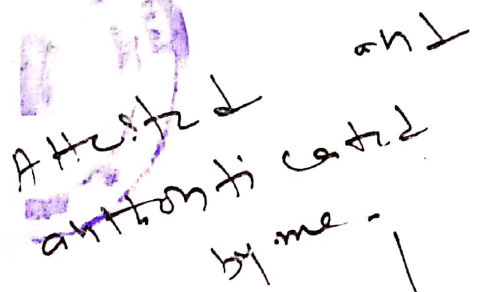 Attested and
authenticated
by me.